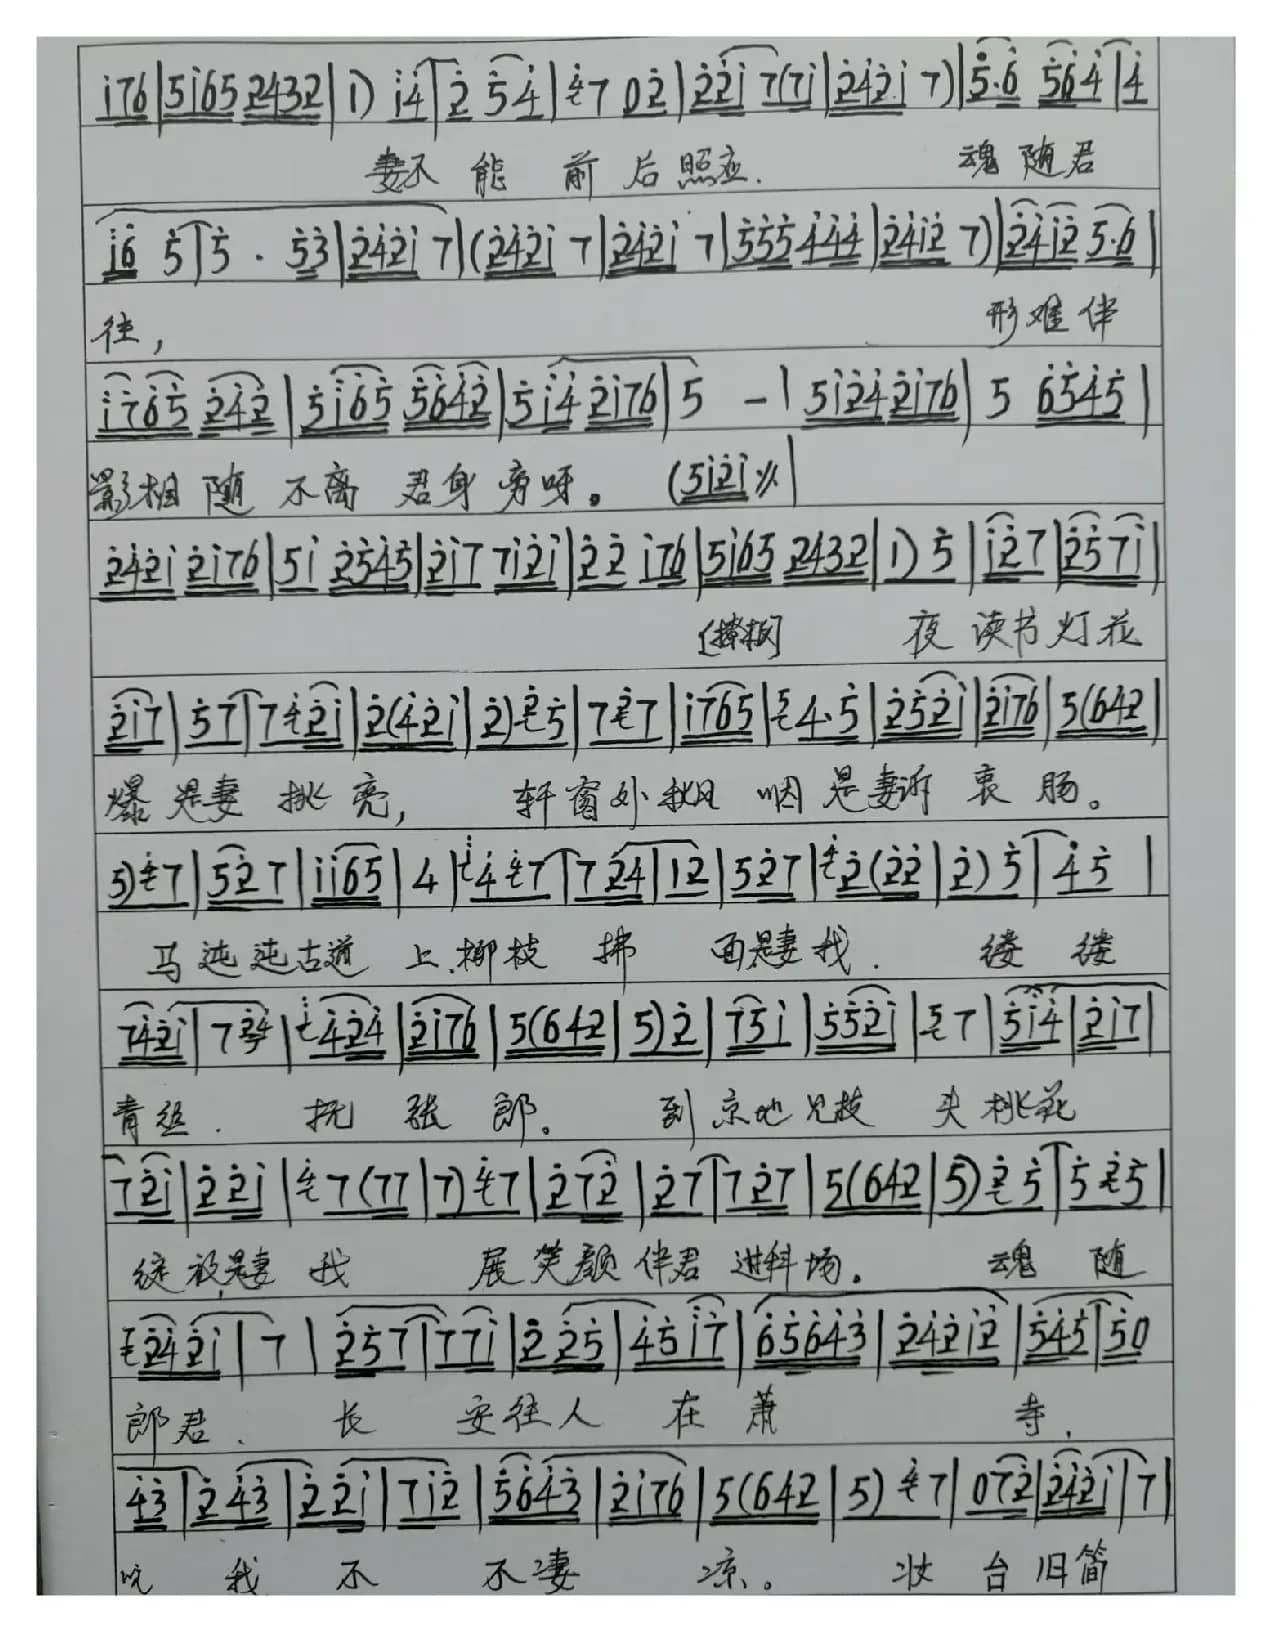 i76|5i65 2432|1) i4|2 54|7 02|22i 7(7i|242i 7)|5·6 564|4
妻不能前后照应. 魂随君
i6 5|5 · 53|242i 7|(242i 7|242i 7|555 444|24i2 7)|24i2 5·6|
往, 形难伴
i765 242|5i65 5642|5i4 2i76|5 -|5i24 2i76|5 6545|
影相随不离君身旁呀。(5i2i
242i 2i76|5i 2545|2i7 7i2i|22 i76|5i65 2432|1) 5|i27|257i|
夜读书灯花
2i7|57|7 2i|2(42i|2) 5|7 7|i765|4·5|252i|2i76|5(642|
爆是妻挑亮, 轩窗外秋风咽是妻诉衷肠。
5) 7|527|ii65|4|4 7|724|12|527|2(22|2) 5|45|
马 古道上.柳枝拂面是妻我. 缕缕
742i|7 24|424|2i76|5(642|5) 2|75i|552i|7|5i4|2i7|
青丝. 抚张郎。 到京地见枝头桃花
72i|22i|7(77|7) 7|272|27|727|5(642|5) 5|5 5|
绽放是妻我 展笑颜伴君进科场。 魂随
242i|7|257|77i|2 25|45 i7|65643|242i2|545|50
郎君. 长安往人在萧寺.
43|2 43|2 2i|7i2|5643|2i76|5(642|5) 7|072|242i|7|
我不不凄凉。 妆台旧简